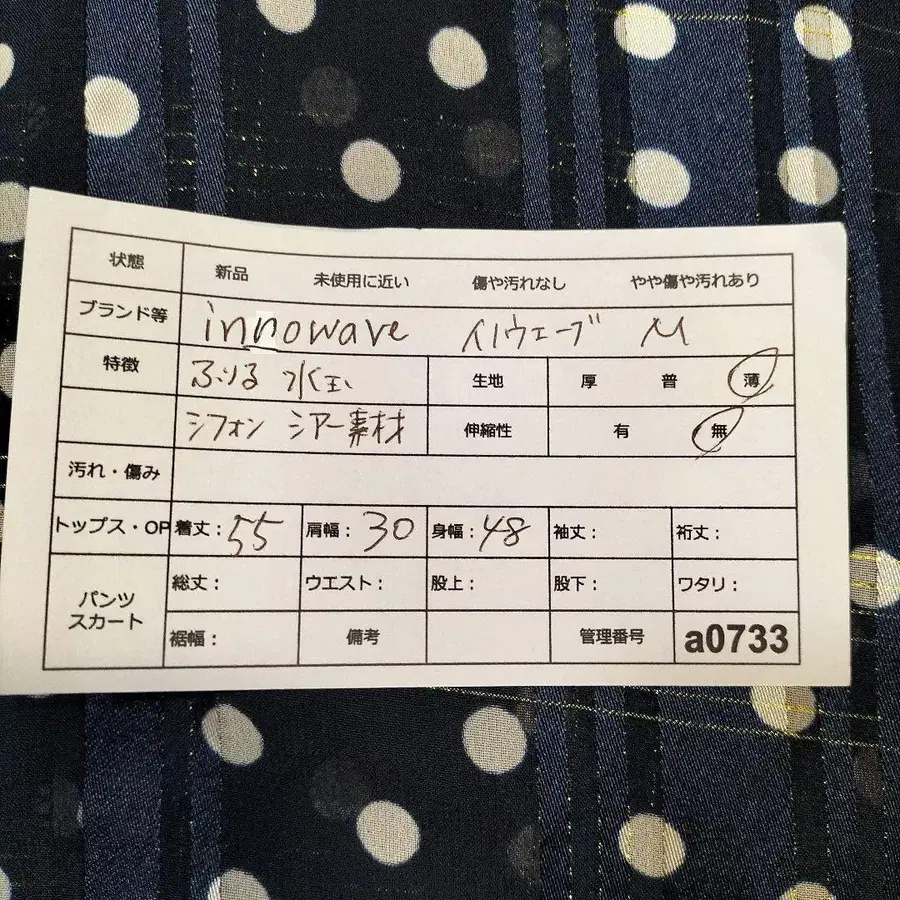 状態 新品 未使用に近い 傷や汚れなし やや傷や汚れあり
ブランド等 innowave イノウェーブ M
特徴 ふりる 水玉 生地 厚 普 薄
シフォン シアー素材 伸縮性 有 無
汚れ・傷み
トップス・OP 着丈：55 肩幅：30 身幅：48 袖丈： 裄丈：
パンツ スカート 総丈： ウエスト： 股上： 股下： ワタリ：
裾幅： 備考 管理番号 a0733